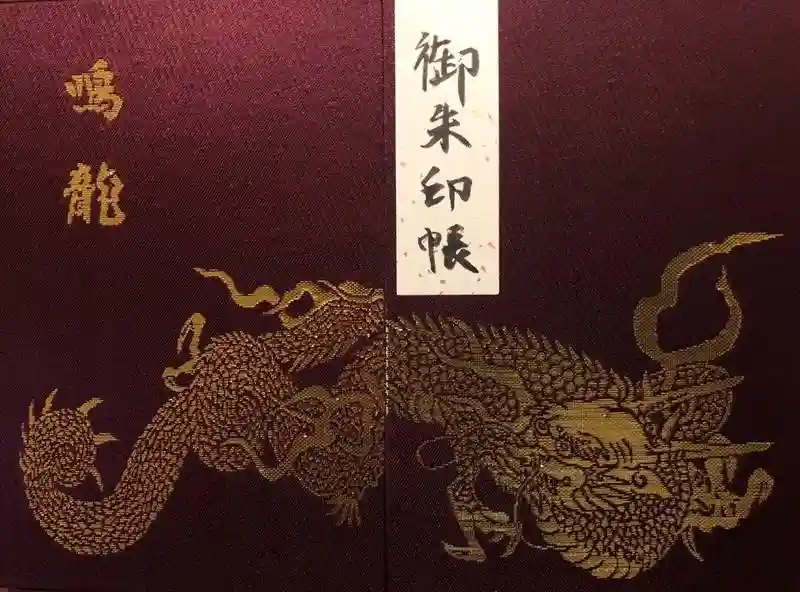 御朱印帳
鳴龍